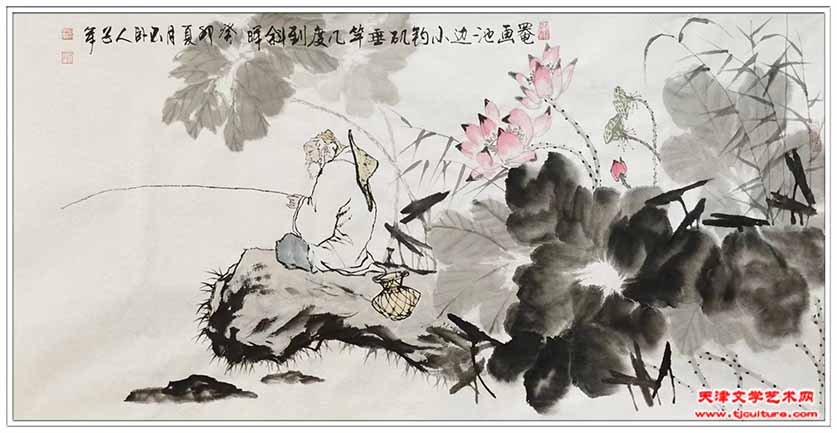 罨画池边小钓矶垂竿几度到斜晖 癸卯夏月 人 年
天津文学艺术网
www.tjculture.com